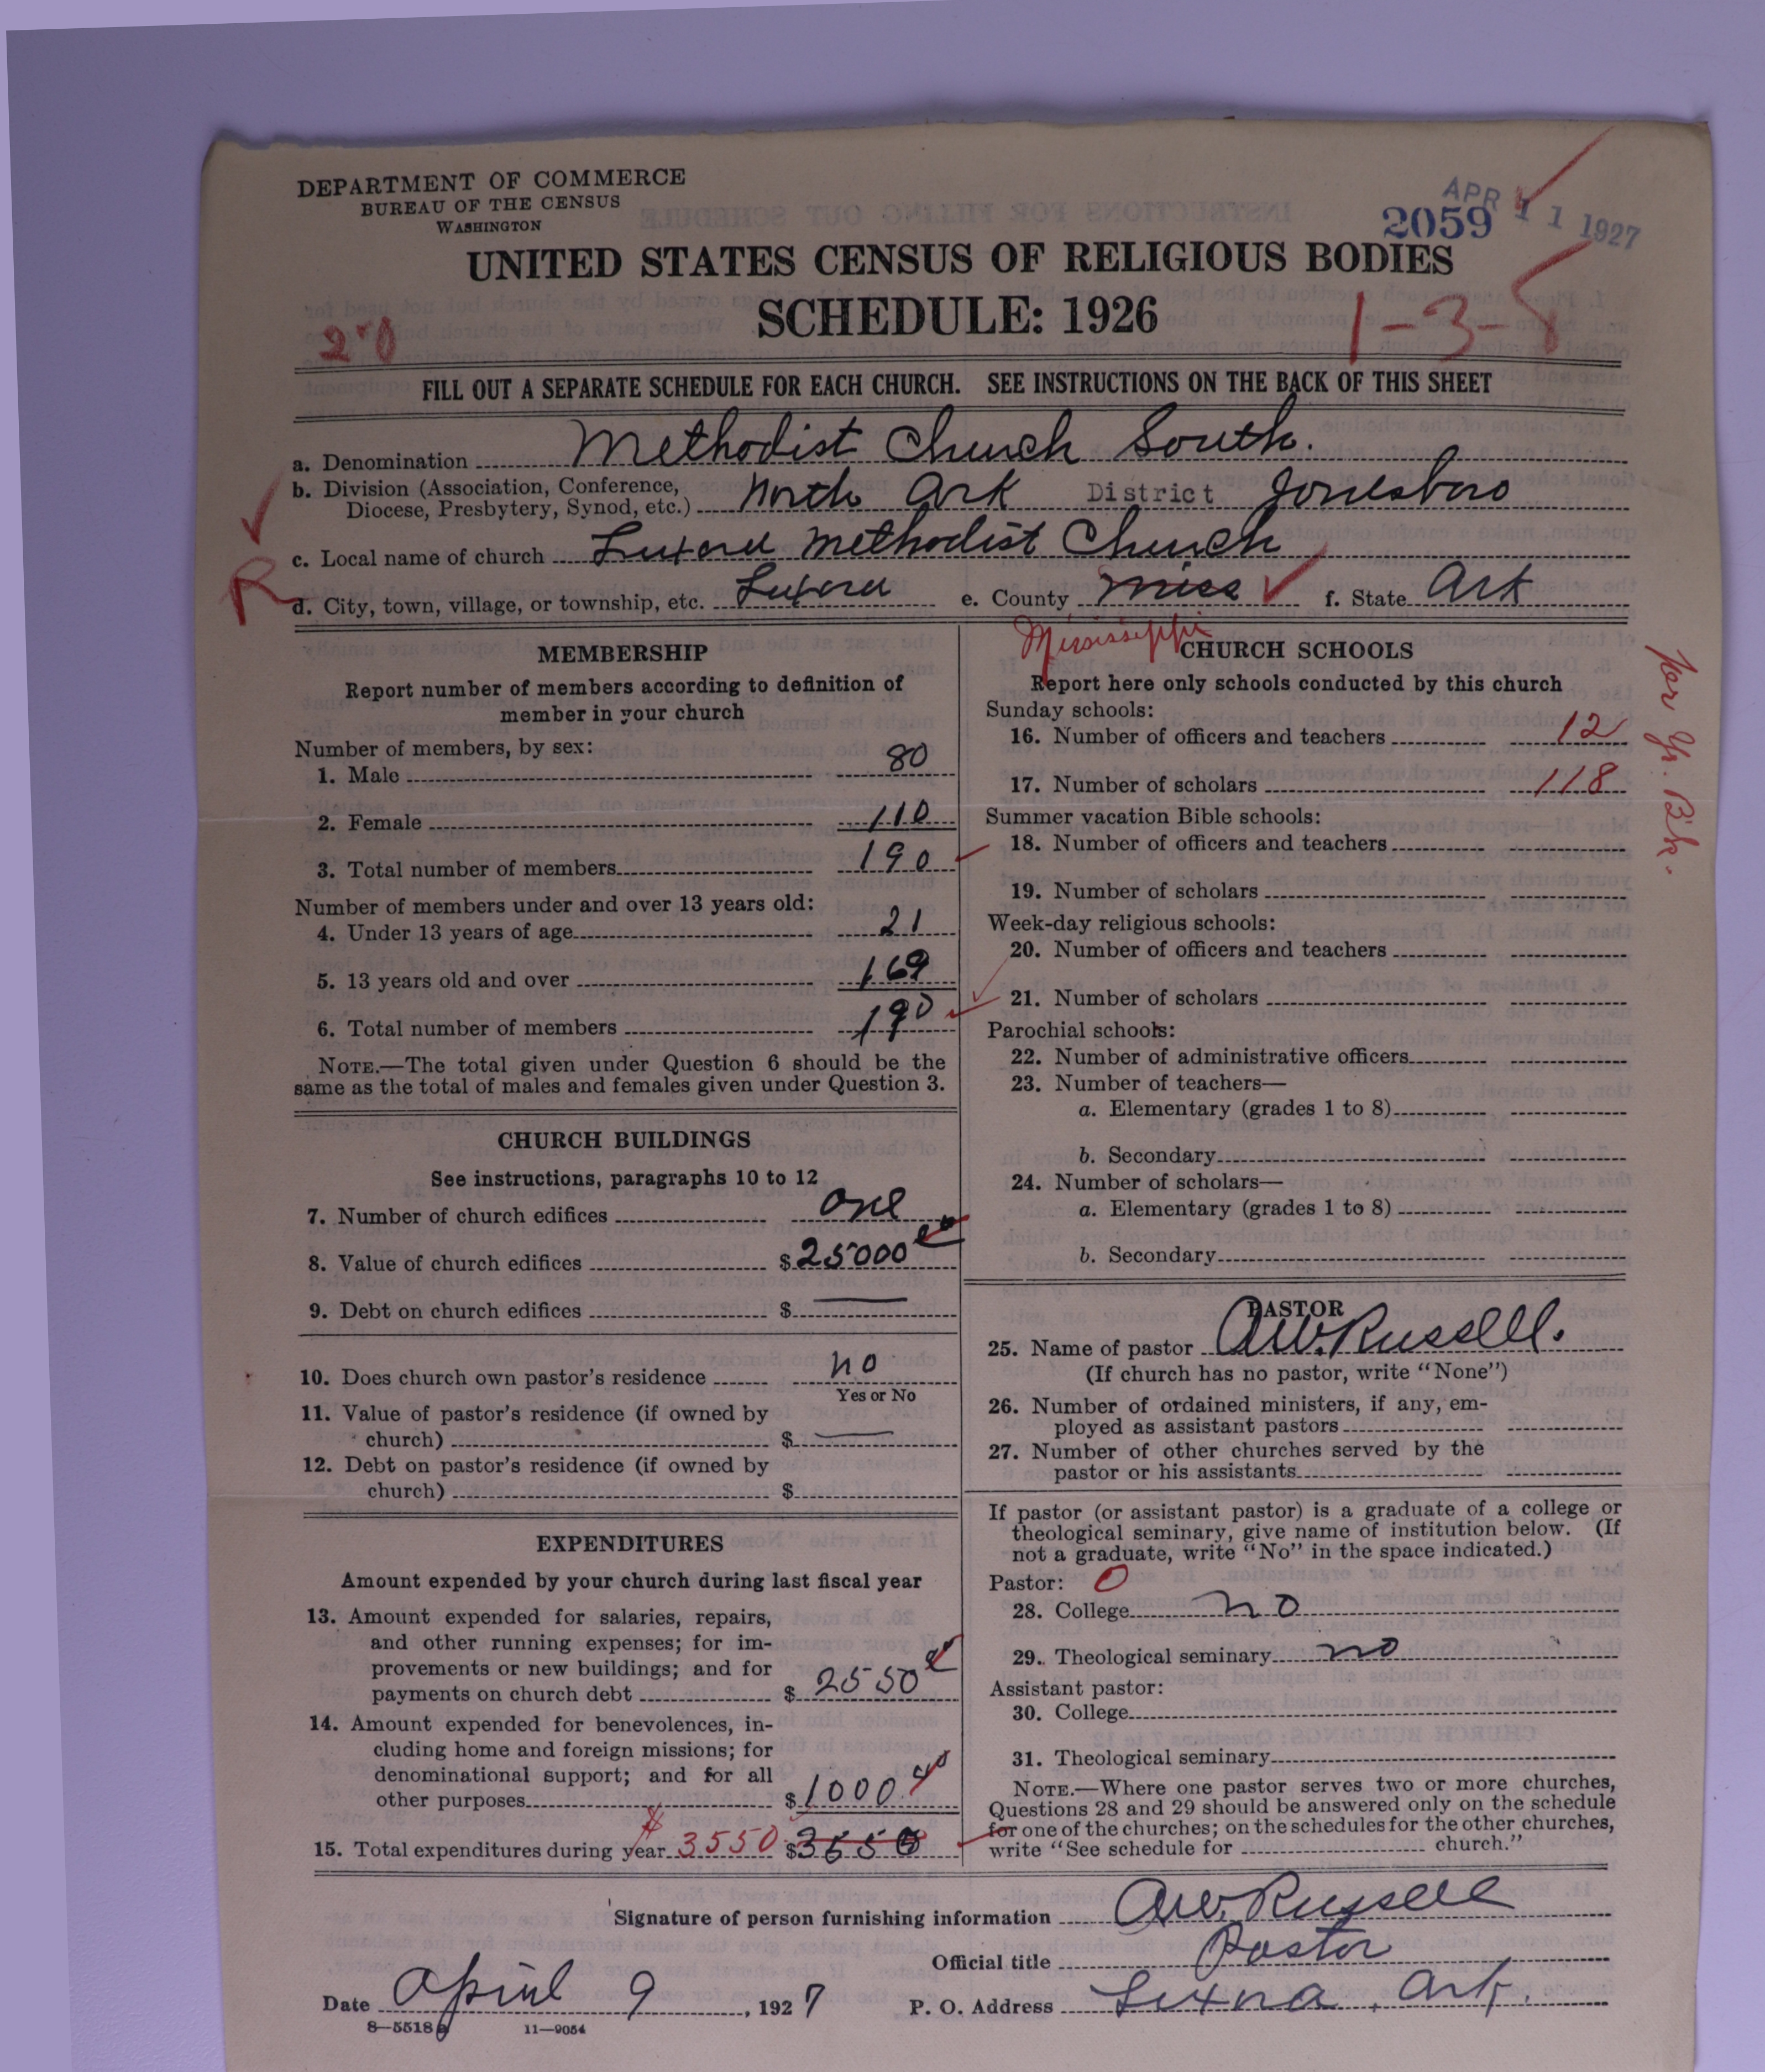 DEPARTMENT OF COMMERCE
BUREAU OF THE CENSUS
WASHINGTON
APR 11 1927
2059
UNITED STATES CENSUS OF RELIGIOUS BODIES
SCHEDULE: 1926
1-3-5
FILL OUT A SEPARATE SCHEDULE FOR EACH CHURCH. SEE INSTRUCTIONS ON THE BACK OF THIS SHEET
a. Denomination Methodist Church South.
b. Division (Association, Conference, Diocese, Presbytery, Synod, etc.) North Ark District Jonesboro
c. Local name of church Luxora Methodist Church
d. City, town, village, or township, etc. Luxora e. County Miss f. State Ark
Mississippi
MEMBERSHIP
Report number of members according to definition of
member in your church
Number of members, by sex:
1. Male 80
2. Female 110
3. Total number of members 190
Number of members under and over 13 years old:
4. Under 13 years of age 21
5. 13 years old and over 169
6. Total number of members 190
NOTE.—The total given under Question 6 should be the
same as the total of males and females given under Question 3.
CHURCH BUILDINGS
See instructions, paragraphs 10 to 12
7. Number of church edifices One
8. Value of church edifices $25000
9. Debt on church edifices $ —
10. Does church own pastor's residence no
Yes or No
11. Value of pastor's residence (if owned by
church) $ —
12. Debt on pastor's residence (if owned by
church) $
EXPENDITURES
Amount expended by your church during last fiscal year
13. Amount expended for salaries, repairs,
and other running expenses; for im-
provements or new buildings; and for
payments on church debt $ 2550
14. Amount expended for benevolences, in-
cluding home and foreign missions; for
denominational support; and for all
other purposes $1000
15. Total expenditures during year $ 3550 $3550
CHURCH SCHOOLS
Report here only schools conducted by this church
Sunday schools:
16. Number of officers and teachers 12
17. Number of scholars 118
Per Yr. Bk.
Summer vacation Bible schools:
18. Number of officers and teachers
19. Number of scholars
Week-day religious schools:
20. Number of officers and teachers
21. Number of scholars
Parochial schools:
22. Number of administrative officers
23. Number of teachers—
a. Elementary (grades 1 to 8)
b. Secondary
24. Number of scholars—
a. Elementary (grades 1 to 8)
b. Secondary
PASTOR
25. Name of pastor A.W. Russell.
(If church has no pastor, write "None")
26. Number of ordained ministers, if any, em-
ployed as assistant pastors
27. Number of other churches served by the
pastor or his assistants
If pastor (or assistant pastor) is a graduate of a college or
theological seminary, give name of institution below. (If
not a graduate, write "No" in the space indicated.)
Pastor: 0
28. College no
29. Theological seminary no
Assistant pastor:
30. College
31. Theological seminary
NOTE.—Where one pastor serves two or more churches,
Questions 28 and 29 should be answered only on the schedule
for one of the churches; on the schedules for the other churches,
write "See schedule for church."
Signature of person furnishing information A.W. Russell
Official title Pastor
Date April 9, 1927 P. O. Address Luxora, Ark.
8—5518 11—9054